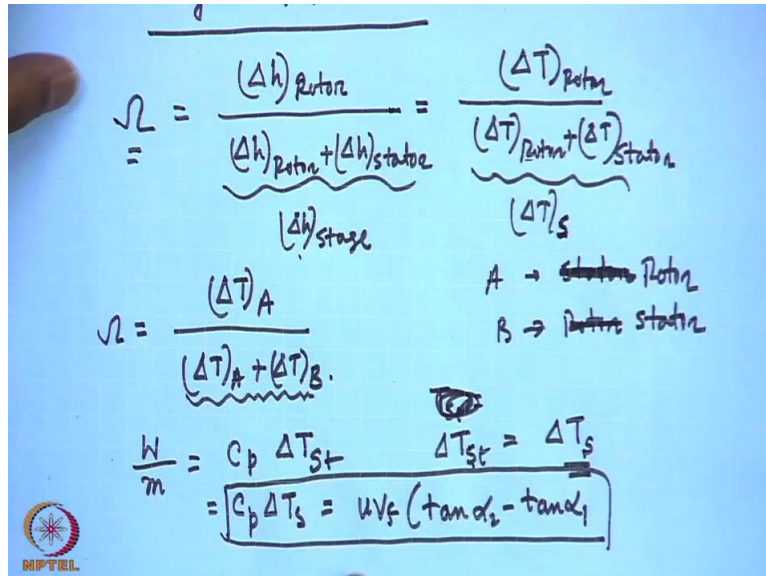 Ω = (Δh)Rotor / ((Δh)Rotor + (Δh)stator) = (ΔT)Rotor / ((ΔT)Rotor + (ΔT)Stator)
(Δh)stage (ΔT)s
A → Rotor
Ω = (ΔT)A / ((ΔT)A + (ΔT)B.
B → Stator
W/m = Cp ΔTSt ΔTSt = ΔTs
= Cp ΔTs = uVf (tan α2 - tan α1
NPTEL